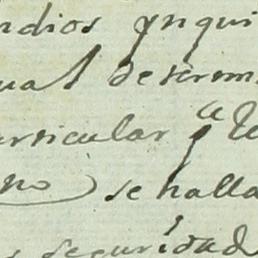 ndios ynqui
ual determ
articular pa le
no se halla
seguridad